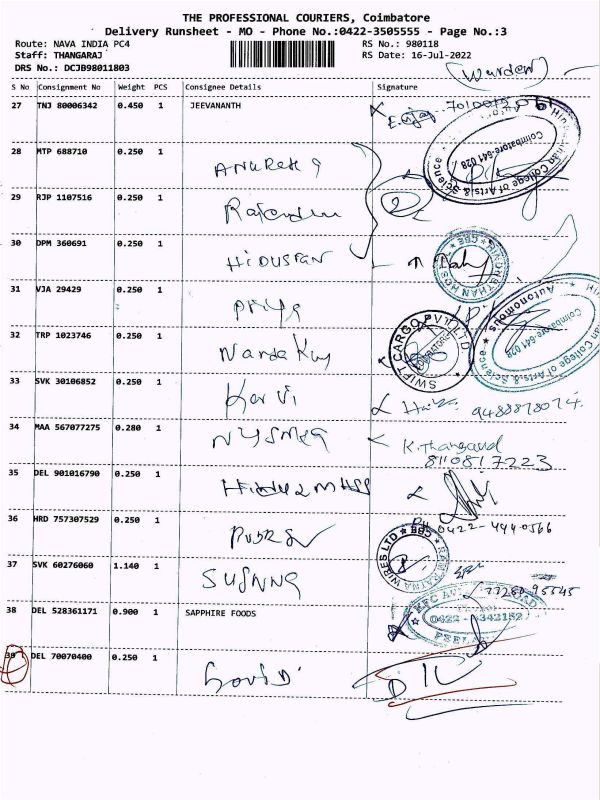 THE PROFESSIONAL COURIERS, Coimbatore
Delivery Runsheet - MO - Phone No.:0422-3505555 - Page No.:3
Route: NAVA INDIA PC4 RS No.: 980118
Staff: THANGARAJ RS Date: 16-Jul-2022
DRS No.: DCJB98011803
(Warden)
S No Consignment No Weight PCS Consignee Details Signature
27 TNJ 80006342 0.450 1 JEEVANANTH
Hindusthan College of Arts & Science
Coimbatore-641 028
28 MTP 688710 0.250 1
29 RJP 1107516 0.250 1
30 DPM 360691 0.250 1 HiDUSTAN
CBE
31 VJA 29429 0.250 1 Priya
Hindusthan College of Arts & Science
Autonomous
Coimbatore-641 028
32 TRP 1023746 0.250 1 Nanda
SWIFT CARGO PVT LTD
COIMBATORE
33 SVK 30106852 0.250 1 9488878074
34 MAA 567077275 0.280 1 K. Thangavel
8110817223
35 DEL 901016790 0.250 1
36 HRD 757307529 0.250 1 PH 0422-4440566
RAMRATNA WIRES LTD
CBE
37 SVK 60276060 1.140 1 SUSANNA
38 DEL 528361171 0.900 1 SAPPHIRE FOODS
KFC
0422 4342152
39 DEL 70070400 0.250 1